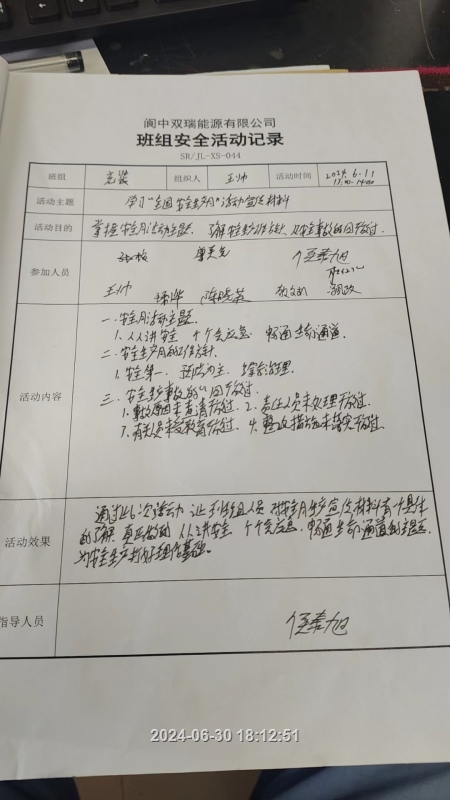 阆中双瑞能源有限公司
班组安全活动记录
SR/JL-XS-044
班组 充装 组织人 王帅 活动时间 2024.6.11
活动主题 学习“全国安全生产月”活动宣传材料
活动目的 掌握安全月活动主题、了解安全生产工作方针、及安全事故的四不放过.
参加人员
王帅
活动内容
一.安全月活动主题.
1.人人讲安全 个个会应急 畅通生命通道.
二.安全生产月的工作方针.
1.安全第一、预防为主、综合治理.
三.安全生产事故的"四不放过.
1.事故原因未查清不放过. 2.责任人员未处理不放过.
3.有关人员未受教育不放过. 4.整改措施未落实不放过.
活动效果
通过此次活动 让到班组人员 对安全月生产宣传材料有个具体
的了解 真正做到 人人讲安全 个个会应急. 畅通生命通道的主题.
为安全生产打好理论基础.
指导人员
2024-06-30 18:12:51